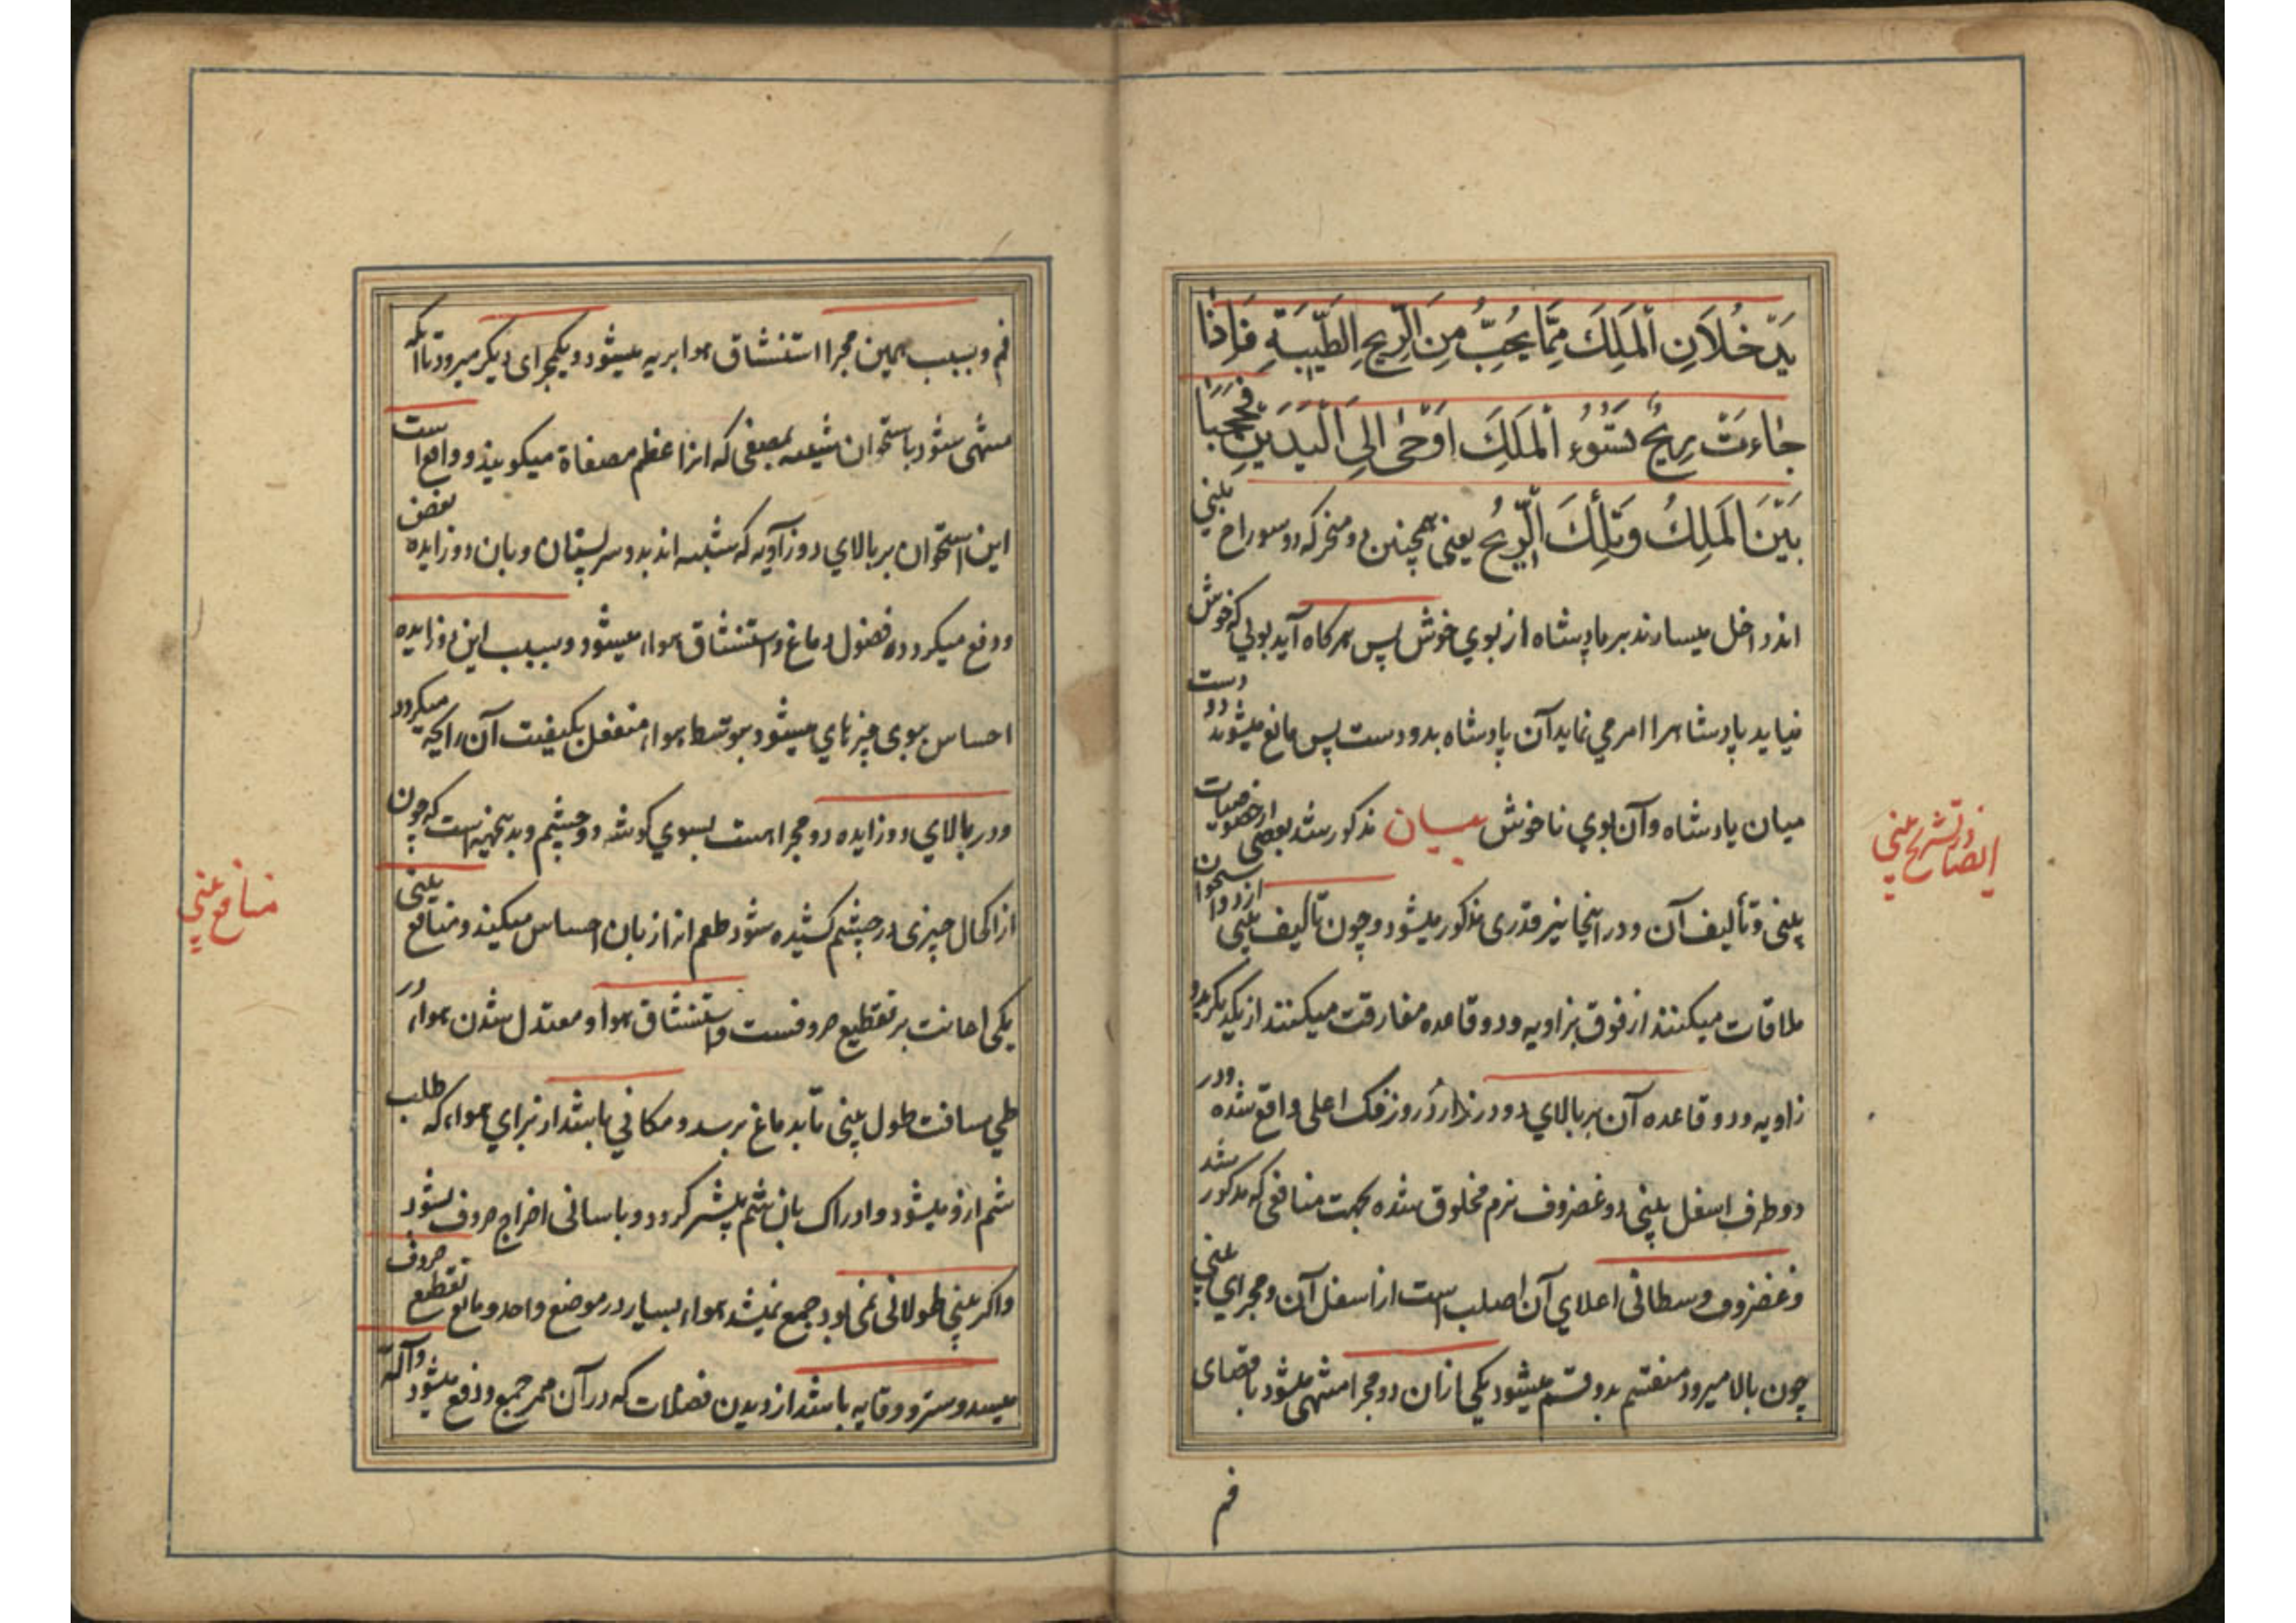 يَدْخُلَانِ الْمَلِكَ مِمَّا يُحِبُّ مِنَ الرِّيحِ الطَّيِّبَةِ فَاِذَا
جَاءَتْ رِيحٌ تَسُوءُ الْمَلِكَ اَوْحَى اِلَى الْيَدَيْنِ فَحَجَبَا
بَيْنَ الْمَلِكِ وَتِلْكَ الرِّيحِ یعنی همچنین دو منخر که دو سوراخ بینی
اند داخل میسازند بر پادشاه از بوی خوش پس هرگاه آید بوئی که خوش
نیاید پادشاه را امر می نماید آن پادشاه بدو دست پس مانع میشوند دو دست
میان پادشاه و آن بوی ناخوش بیان مذکور شد بعضی از خصوصیات
بینی و تألیف آن و در اینجا نیز قدری مذکور میشود و چون تألیف بینی از دو استخوان
ملاقات میکنند از فوق بزاویه و دو قاعده مفارقت میکنند از یکدیگر بدو
زاویه و دو قاعده آن بر بالای دو درز از دروز فک اعلی واقع شده و در
دو طرف اسفل بینی دو غضروف نرم مخلوق شده بجهت منافعی که مذکور شد
و غضروف وسطانی اعلای آن اصلب است از اسفل آن و مجرای بینی
چون بالا میرود منقسم بدو قسم میشود یکی ازان دو مجرا منتهی میشود باقصای
فم
ایضا در تشریح بینی
فم و بسبب همین مجرا استنشاق هوا بریه میشود و یکمجرای دیگر میرود تا آنکه
منتهی شود باستخوان شبیه بمصفی که انرا عظم مصفاة میکویند و واقع است
این استخوان بر بالای دو زاویه که شبیه اند بدو سر پستان و بان دو زایده نفض
و دفع میکردده فضول دماغ و استنشاق هواء میشود و بسبب این دو زایده
احساس بوی چیزهای میشود بتوسط هواء منفعل بکیفیت آن رایحه میکردد
و در بالای دو زایده دو مجرا هست بسوی کوشه دو چشم و بدینجهت است که چون
از اکحال چیزی در چشم کشیده شود طعم انرا زبان احساس میکند و منافع بینی
یکی اعانت بر تقطیع حروفست و استنشاق هوا و معتدل شدن هواء در
طی مسافت طول بینی تا بدماغ برسد و مکانی باشد از برای هواء که طلب
شم ازو میشود و ادراک بان شم بیشتر کردد و باسانی اخراج حروف بشود
و اکر بینی طولانی نمی بود جمع نمیشد هواء بسیار در موضع واحد و مانع تقطیع حروف
میشد و ستر و وقایه باشد از دیدن فضلات که در آن ممر جمع و دفع میشود و آلة
منافع بینی